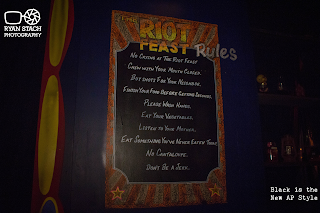 RYAN STACH
PHOTOGRAPHY
THE
RIOT
FEAST Rules
No Crying at The Riot Feast
Chew with Your Mouth Closed.
Eat Something You've Never Eaten Before
Finish Your Food Before Getting Seconds.
Please Wash Hands.
Eat Your Vegetables.
Listen to Your Mother.
No Cantaloupe.
Don't Be a Jerk.
Black is the
New AP Style